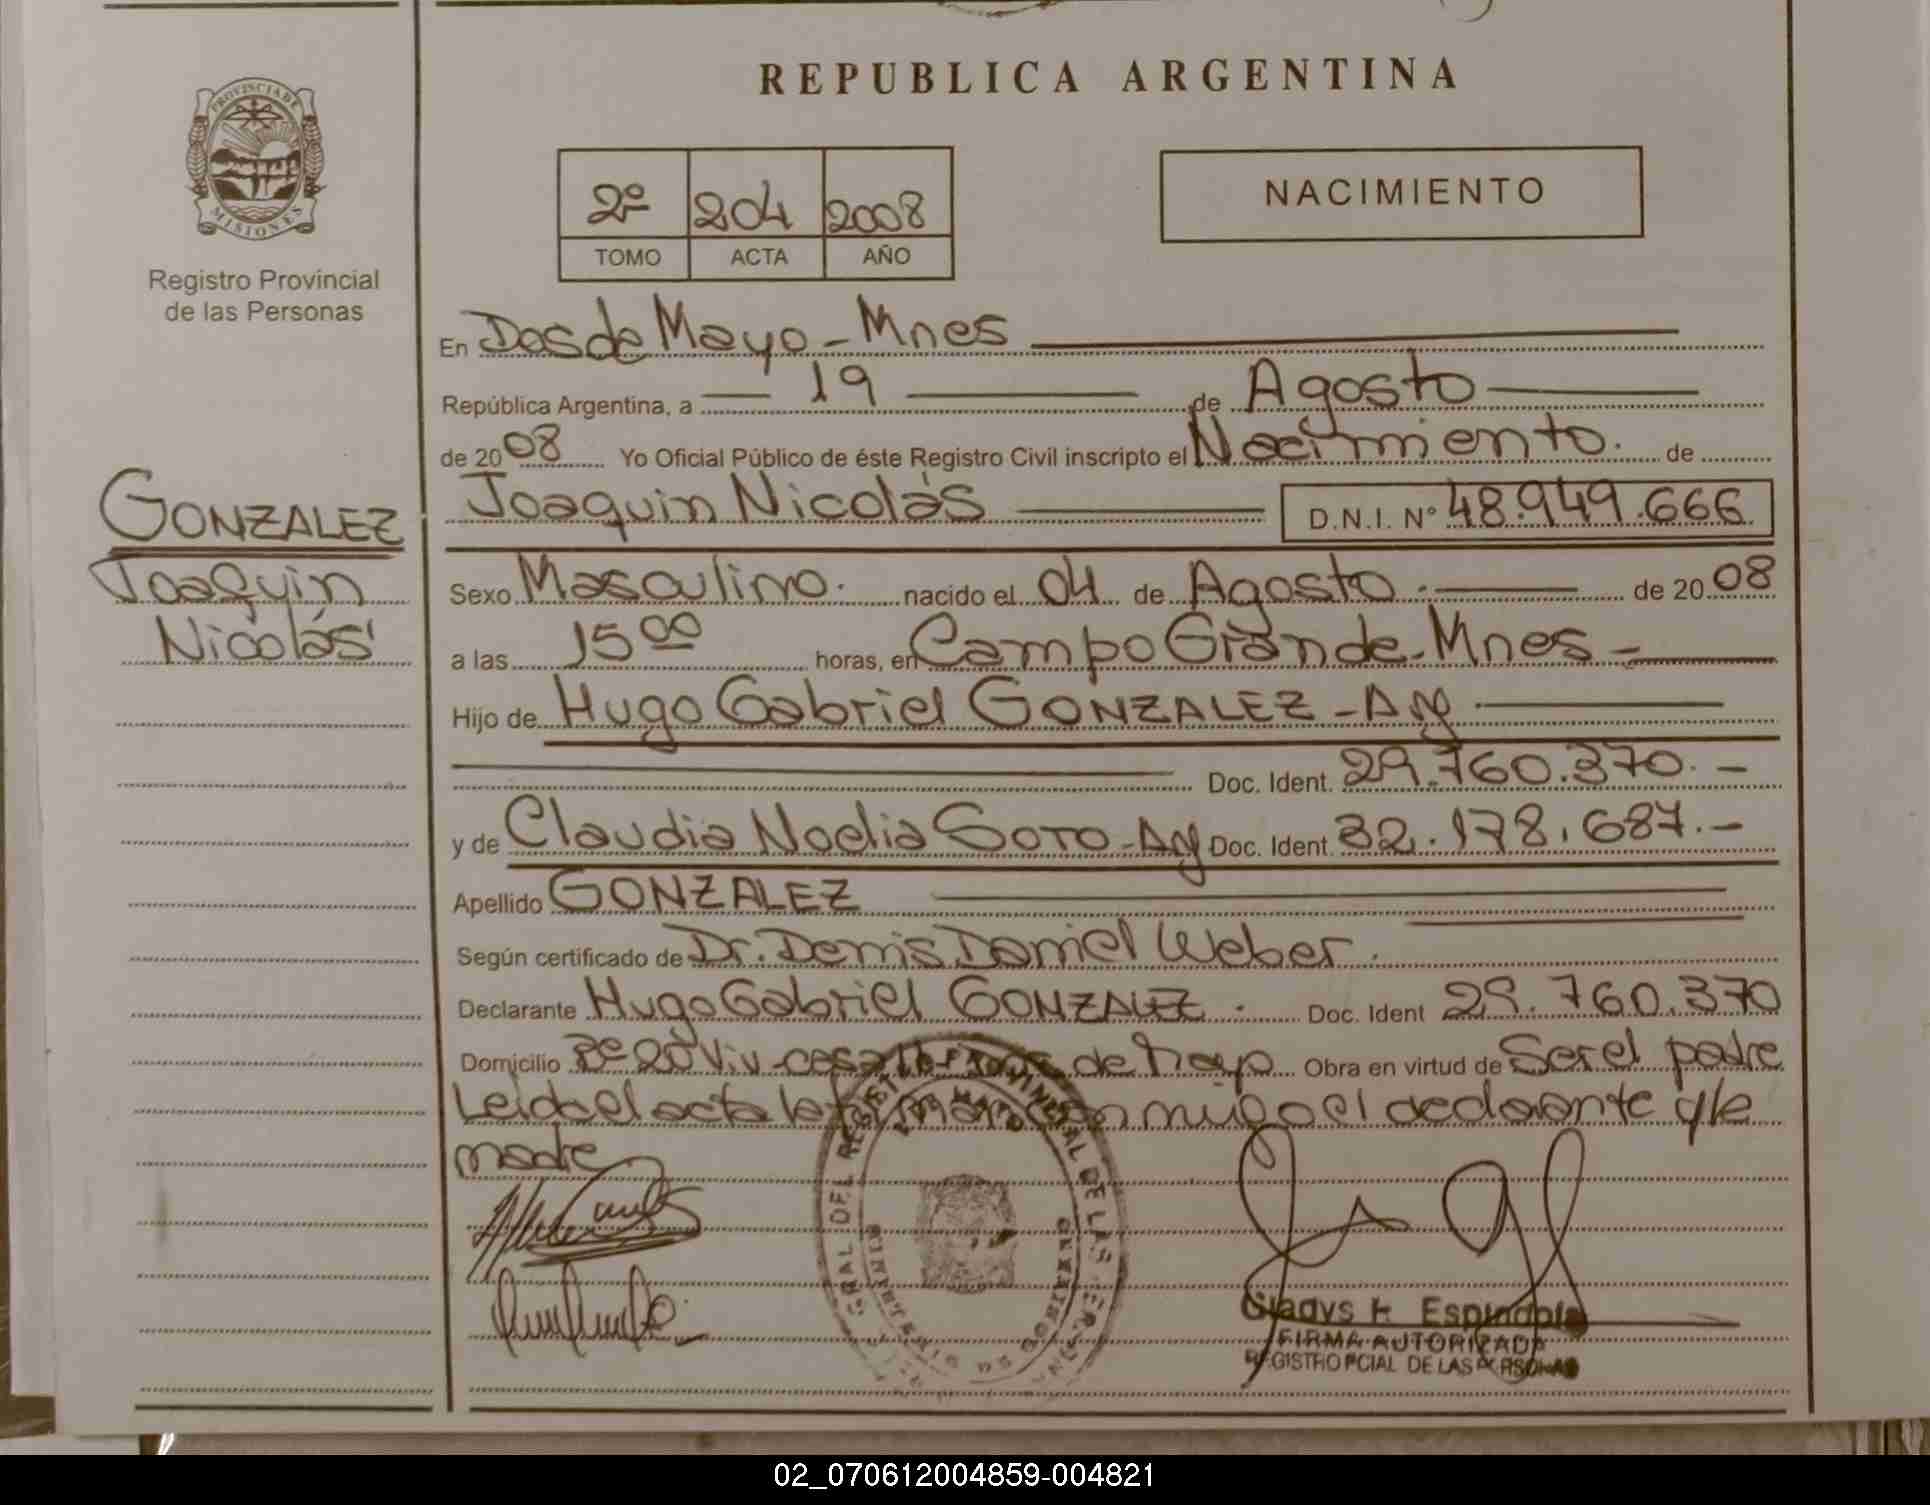 REPUBLICA ARGENTINA
PROVINCIA DE
MISIONES
Registro Provincial
de las Personas
2º 204 2008
TOMO ACTA AÑO
NACIMIENTO
GONZALEZ
Joaquin
Nicolás
En Dos de Mayo - Mnes
República Argentina, a 19 de Agosto
de 2008 Yo Oficial Público de éste Registro Civil inscripto el Nacimiento. de
Joaquin Nicolás D.N.I. Nº 48.949.666
Sexo Masculino. nacido el 04 de Agosto. de 2008
a las 15 00 horas, en Campo Grande - Mnes -
Hijo de Hugo Gabriel GONZALEZ - Arg
Doc. Ident. 29.760.370. -
y de Claudia Noelia SOTO - Arg Doc. Ident. 32.178.687. -
Apellido GONZALEZ
Según certificado de Dr. Denis Daniel Weber.
Declarante Hugo Gabriel GONZALEZ. Doc. Ident 29.760.370
Domicilio Bº 20 Viv - casa de Mayo Obra en virtud de Ser el padre
Leida el acta la firman conmigo el declarante y la
madre
Gladys H. Espindola
FIRMA AUTORIZADA
REGISTRO PCIAL DE LAS PERSONAS
02_070612004859-004821